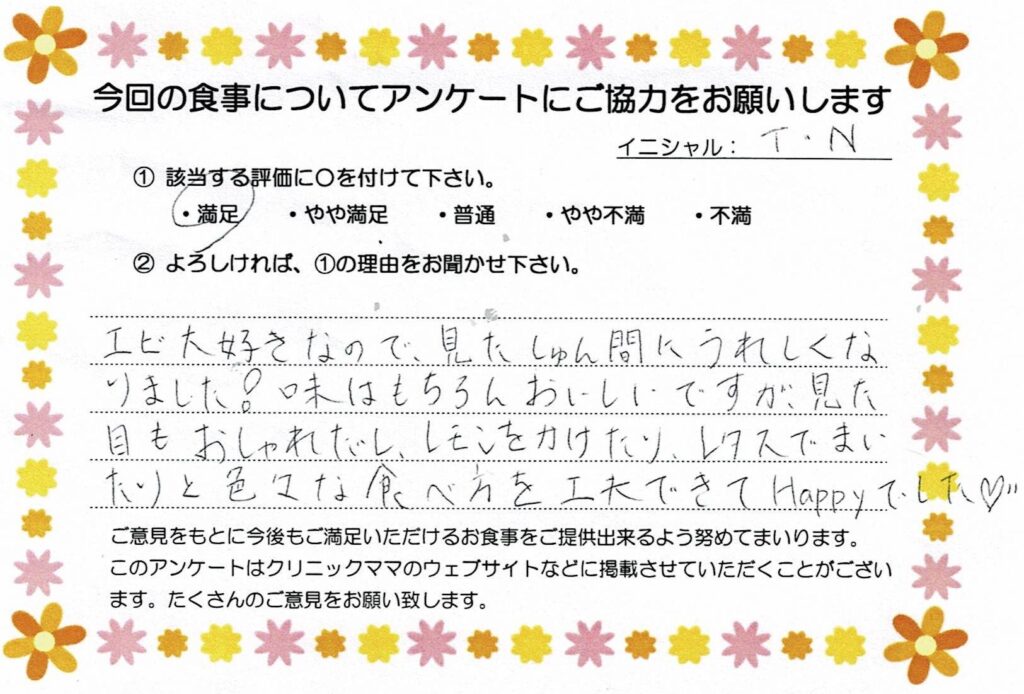 今回の食事についてアンケートにご協力をお願いします
イニシャル: T・N
① 該当する評価に〇を付けて下さい。
・満足 ・やや満足 ・普通 ・やや不満 ・不満
② よろしければ、①の理由をお聞かせ下さい。
エビ大好きなので、見たしゅん間にうれしくな
りました! 味はもちろんおいしいですが、見た
目もおしゃれだし、レモンをかけたり、レタスでまい
たりと色々な食べ方を工夫できてHappyでした♡"
ご意見をもとに今後もご満足いただけるお食事をご提供出来るよう努めてまいります。
このアンケートはクリニックママのウェブサイトなどに掲載させていただくことがござい
ます。たくさんのご意見をお願い致します。